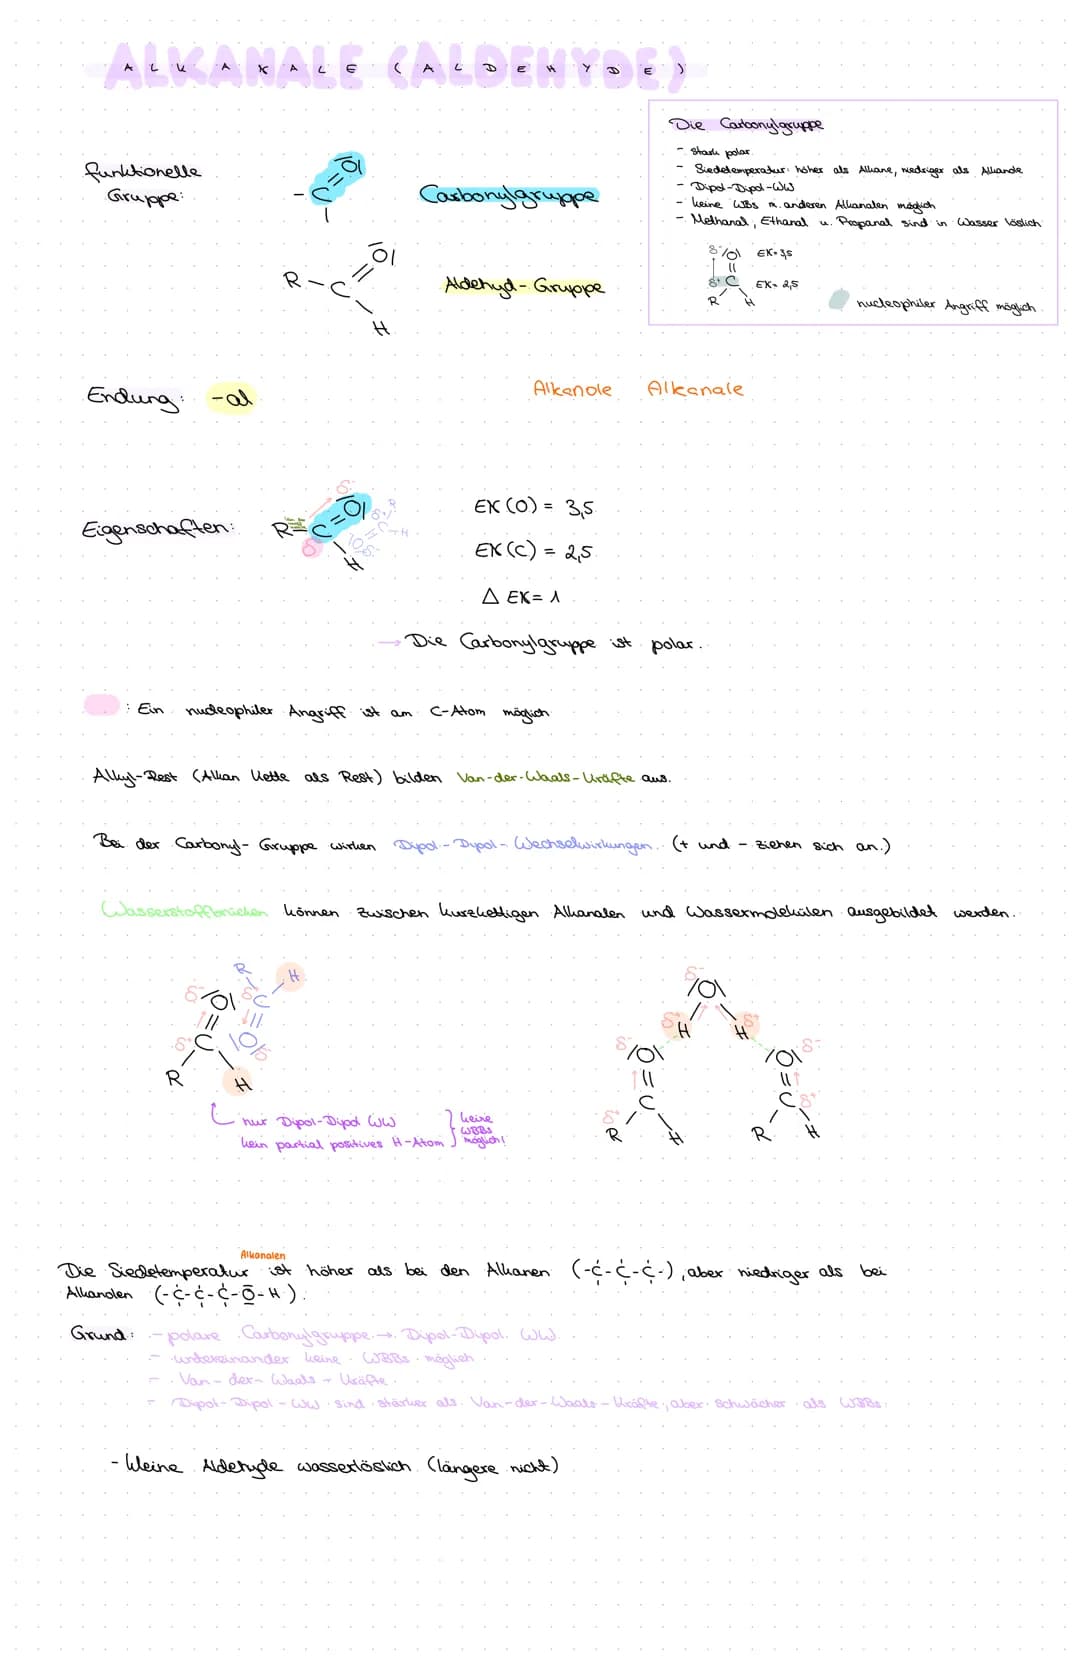 ALKANALE (ALDEHYDE)
Die Carbonylgruppe
- stark polar
- Siedetemperatur: höher als Alkane, niedriger als Alkanole
- Dipol-Dipol-WW
- keine WBs m. anderen Alkanalen möglich
- Methanal, Ethanal u. Propanal sind in Wasser löslich
δ- |O| EK=3,5
||
δ+ C EK=2,5
R H
nucleophiler Angriff möglich
funktionelle
Gruppe:
-C=O|
Carbonylgruppe
R-C=O|
H
Aldehyd-Gruppe
Endung: -al
Alkanole Alkanale
Eigenschaften:
δ-
R-C=O|
δ+
H
EK(O) = 3,5
EK(C) = 2,5
△ EK= 1
→ Die Carbonylgruppe ist polar.
: Ein nucleophiler Angriff ist am C-Atom möglich
Alkyl-Rest (Alkan Kette als Rest) bilden Van-der-Waals-Kräfte aus.
Bei der Carbonyl-Gruppe wirken Dipol-Dipol-Wechselwirkungen. (+ und - ziehen sich an.)
Wasserstoffbrücken können zwischen kurzkettigen Alkanalen und Wassermolekülen ausgebildet werden.
R H
δ- O| δ+ C
δ+ C |O δ-
R H
nur Dipol-Dipol WW
kein partial positives H-Atom
keine
WBBs
möglich!
δ-
|O|
δ+ H H δ+
δ- |O| |O| δ-
|| ||
δ+ C C δ+
R H R H
Alkanalen
Die Siedetemperatur ist höher als bei den Alkanen (-C-C-C-), aber niedriger als bei
Alkanolen (-C-C-C-O-H).
Grund: - polare Carbonylgruppe → Dipol-Dipol WW
- untereinander keine WBBs möglich
- Van-der-Waals-Kräfte
- Dipol-Dipol-WW sind stärker als Van-der-Waals-Kräfte, aber schwächer als WBBs.
- kleine Aldehyde wasserlöslich (längere nicht)